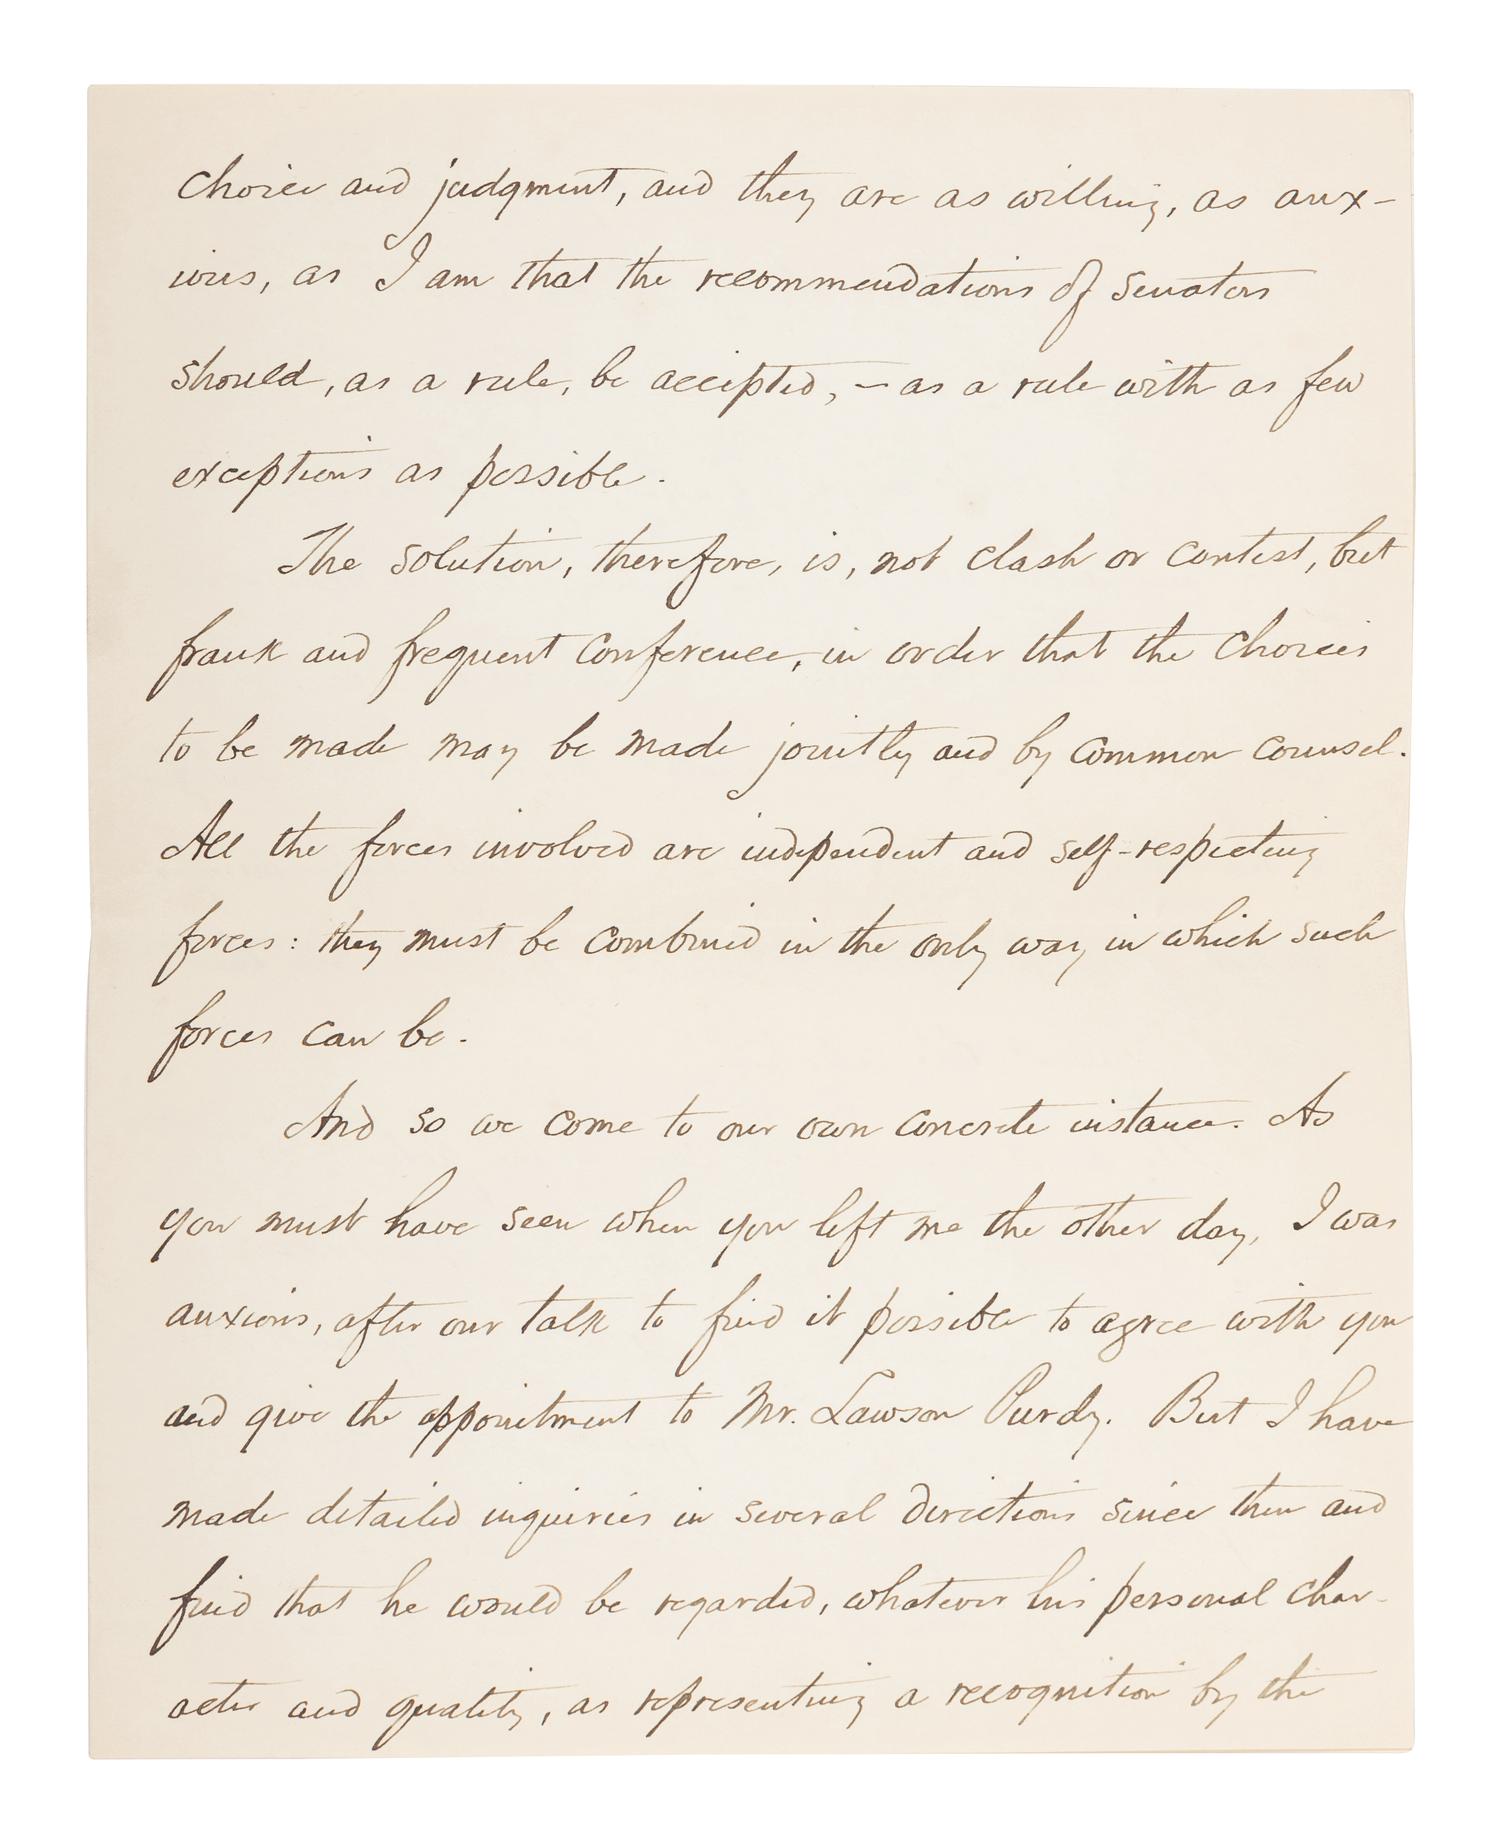 choice and judgment, and they are as willing, as anx-
ious, as I am that the recommendations of Senators
should, as a rule, be accepted, — as a rule with as few
exceptions as possible.
The solution, therefore, is, not clash or contest, but
frank and frequent conference, in order that the choices
to be made may be made jointly and by common counsel.
All the forces involved are independent and self-respecting
forces: they must be combined in the only way in which such
forces can be.
And so we come to our own concrete instance. As
you must have seen when you left me the other day, I was
anxious, after our talk to find it possible to agree with you
and give the appointment to Mr. Lawson Purdy. But I have
made detailed inquiries in several directions since then and
find that he would be regarded, whatever his personal char-
acter and quality, as representing a recognition by the